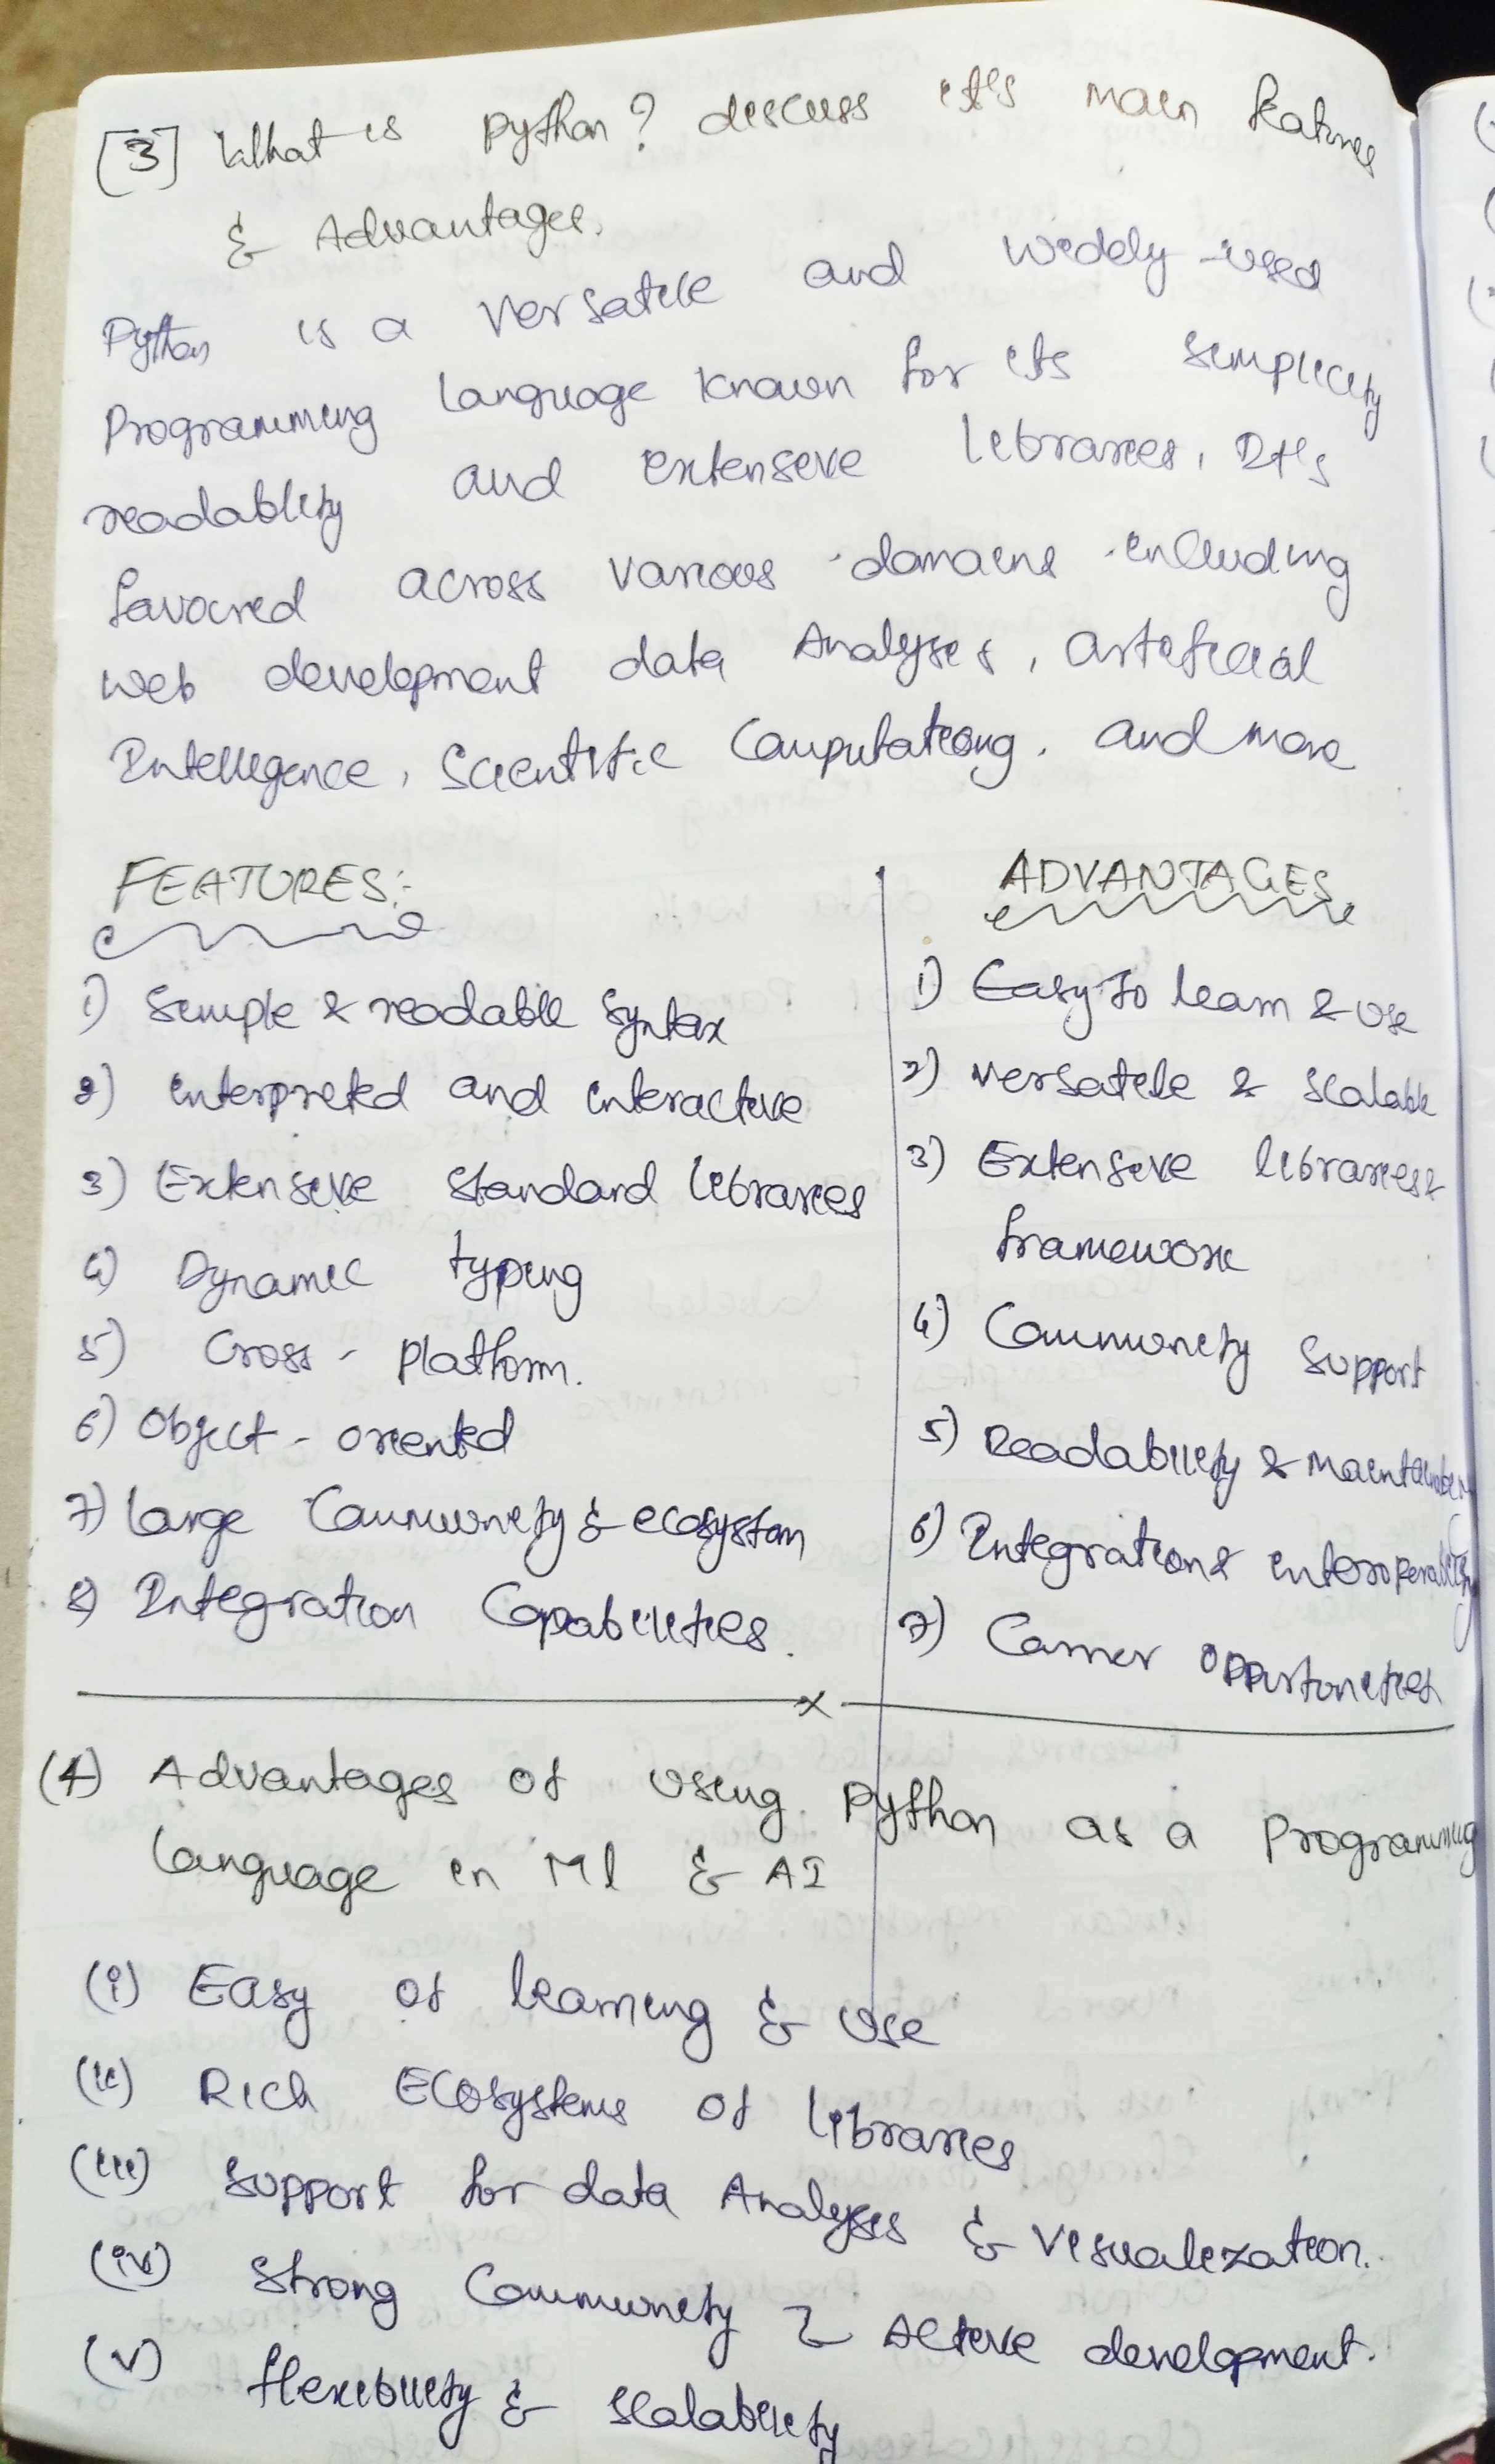 [3] What is python? discuss it's main features
& Advantages.
Python is a versatile and widely-used
Programming language known for its simplicity
readablity and extensive libraries, It's
favoured across various domains including
web development data Analyses, artificial
Intelligence, Scientific Computationg. and more
FEATURES:-
1) Simple & readable syntax
2) interpreted and interactive
3) Extensive standard libraries
4) Dynamic typing
5) Cross - platform.
6) Object - oriented
7) large Community & ecosystem
8) Integration Capabilities.
ADVANTAGES
1) Easy to learn & use
2) versatile & scalable
3) Extensive libraries &
framework
4) Community support
5) Readability &
6) Integration & interoperability
7) Carrier oppurtunities
(4) Advantages of using python as a programming
language in Ml & AI
(i) Easy of learning & use
(ii) Rich Ecosystems of libraries
(iii) support for data Analysis & visualization.
(iv) strong Community & Active development.
(v) flexibility & scalability